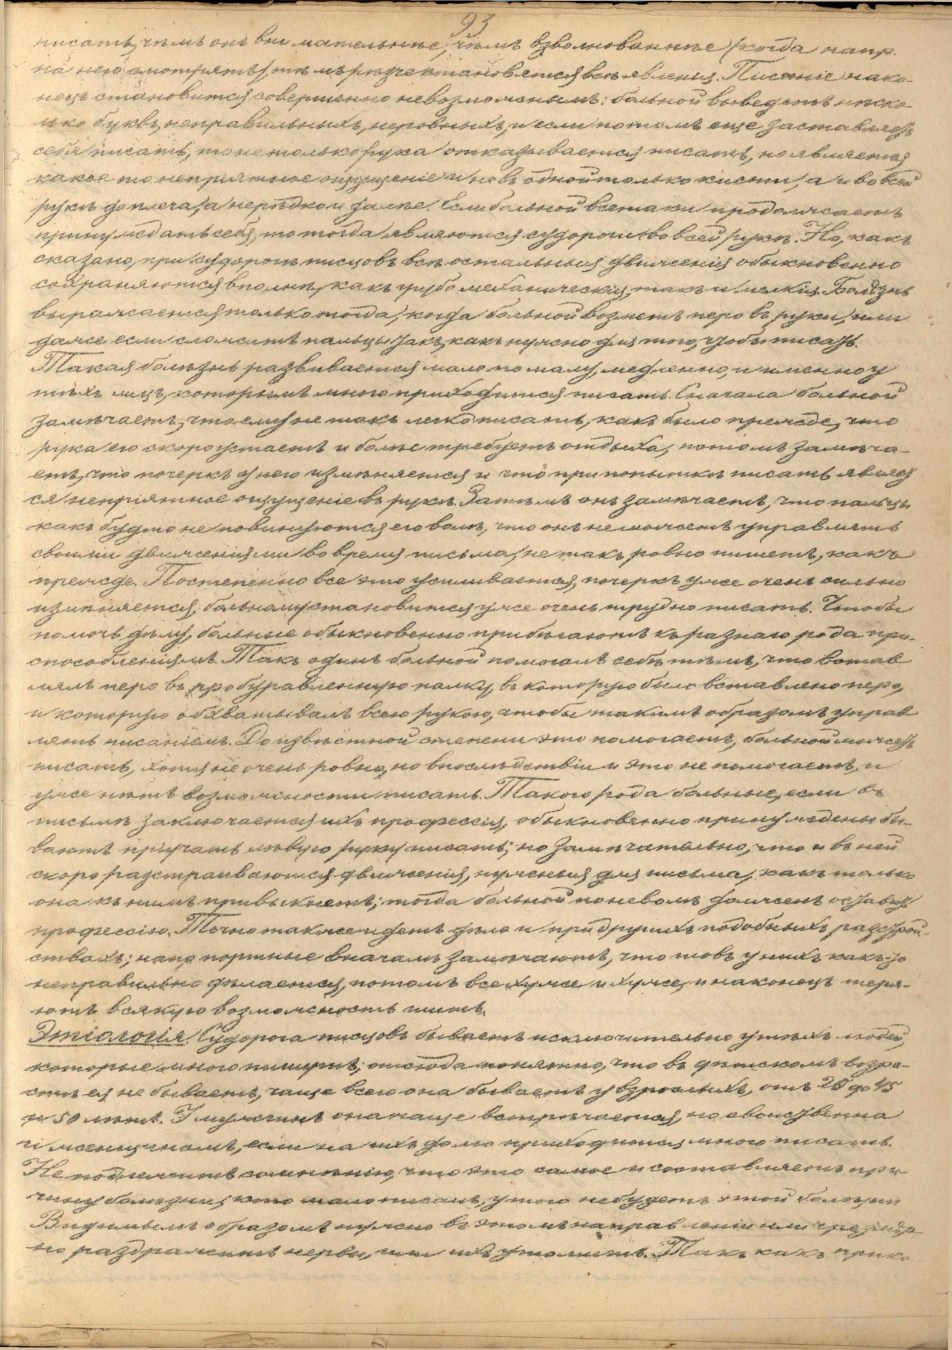 93
писать, чѣмъ онъ внимательнѣе, чѣмъ взволнованнѣе (когда напр.
на него смотрятъ), тѣмъ рѣзче становятся всѣ явленія. Писаніе нако-
нецъ становится совершенно невозможнымъ: больной выведетъ нѣско
лько буквъ, неправильныхъ, неровныхъ, и если потомъ еще заставляетъ
себя писать, то не только рука отказывается писать, но является
какое то непріятное ощущеніе и не въ одной только кисти, а и во всей
рукѣ до плеча, а нерѣдко и далѣе. Если больной всетаки продолжаетъ
принуждать себя, то тогда являются судороги во всей рукѣ. Но, какъ
сказано, при судорогѣ писцовъ всѣ остальныя движенія обыкновенно
сохраняются вполнѣ, какъ грубо механическія, такъ и мелкія. Болѣзнь
выражается только тогда, когда больной возметъ перо въ руки, или
даже если сложитъ пальцы такъ, какъ нужно для того, чтобы писать.
Такая болѣзнь развивается мало по малу, медленно, и именно у
тѣхъ лицъ, которымъ много приходится писать. Сначала больной
замѣчаетъ, что ему не такъ легко писать, какъ было прежде, что
рука его скоро устаетъ и болѣе требуетъ отдыха, потомъ замѣча-
етъ, что почеркъ у него измѣняется и что при попыткѣ писать являет
ся непріятное ощущеніе въ рукѣ. Затѣмъ онъ замѣчаетъ, что пальцы
какъ будто не повинуются его волѣ, что онъ не можетъ управлять
своими движеніями во время письма, не такъ ровно пишетъ, какъ
прежде. Постепенно все это усиливается, почеркъ уже очень сильно
измѣняется, больному становится уже очень трудно писать. Чтобы
помочь дѣлу, больные обыкновенно прибѣгаютъ къ разнаго рода при-
способленіямъ. Такъ одинъ больной помогалъ себѣ тѣмъ, что встав
лялъ перо въ пробуравленную палку, въ которую было вставлено перо,
и которую обхватывалъ всею рукою, чтобы такимъ образомъ управ
лять писаніемъ. До извѣстной степени это помогаетъ, больной можетъ
писать, хотя не очень ровно, но впослѣдствіи и это не помогаетъ, и
уже нѣтъ возможности писать. Такого рода больные, если въ
письмѣ заключается ихъ профессія, обыкновенно принуждены бы-
ваютъ пріучать лѣвую руку писать; но замѣчательно, что и въ ней
скоро разстраиваются движенія, нужныя для письма, какъ только
она къ нимъ привыкнетъ; тогда больной поневолѣ долженъ оставить
профессію. Точно также идетъ дѣло и при другихъ подобныхъ разстрой-
ствахъ; напр портные вначалѣ замѣчаютъ, что шовъ у нихъ какъ-то
неправильно дѣлается, потомъ все хуже и хуже, и наконецъ теря-
ютъ всякую возможность шить.
Этіологія. Судорога писцовъ бываетъ исключительно у тѣхъ людей,
которые много пишутъ; отсюда понятно, что въ дѣтскомъ возра-
стѣ ея не бываетъ, чаще всего она бываетъ у взрослыхъ, отъ 25 до 45
и 50 лѣтъ. У мужчинъ она чаще встрѣчается, но свойственна
и женщинамъ, если на ихъ долю приходится много писать.
Не подлежитъ сомнѣнію, что это самое и составляетъ при-
чину болѣзни; кто мало писалъ, у того не будетъ этой болѣзни
Видимымъ образомъ нужно въ этомъ направленіи или чрезмѣр-
но раздражить нервы, или ихъ утомить. Такъ какъ прико-